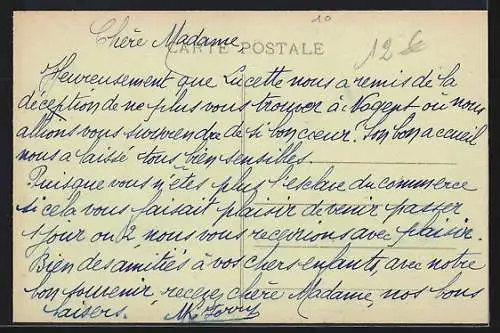 10
Chère Madame,
CARTE POSTALE
12
Heureusement que Lucette nous a remis de la
déception de ne plus vous trouver à Nogent où nous
allions vous surprendre de si bon cœur. Son bon accueil
nous a laissé tous bien sensibles.
Puisque vous n'êtes plus l'esclave du commerce
si cela vous faisait plaisir de venir passer
1 jour ou 2, nous vous recevrions avec plaisir.
Bien des amitiés à vos chers enfants, avec notre
bon souvenir recevez chère Madame nos bons
baisers.